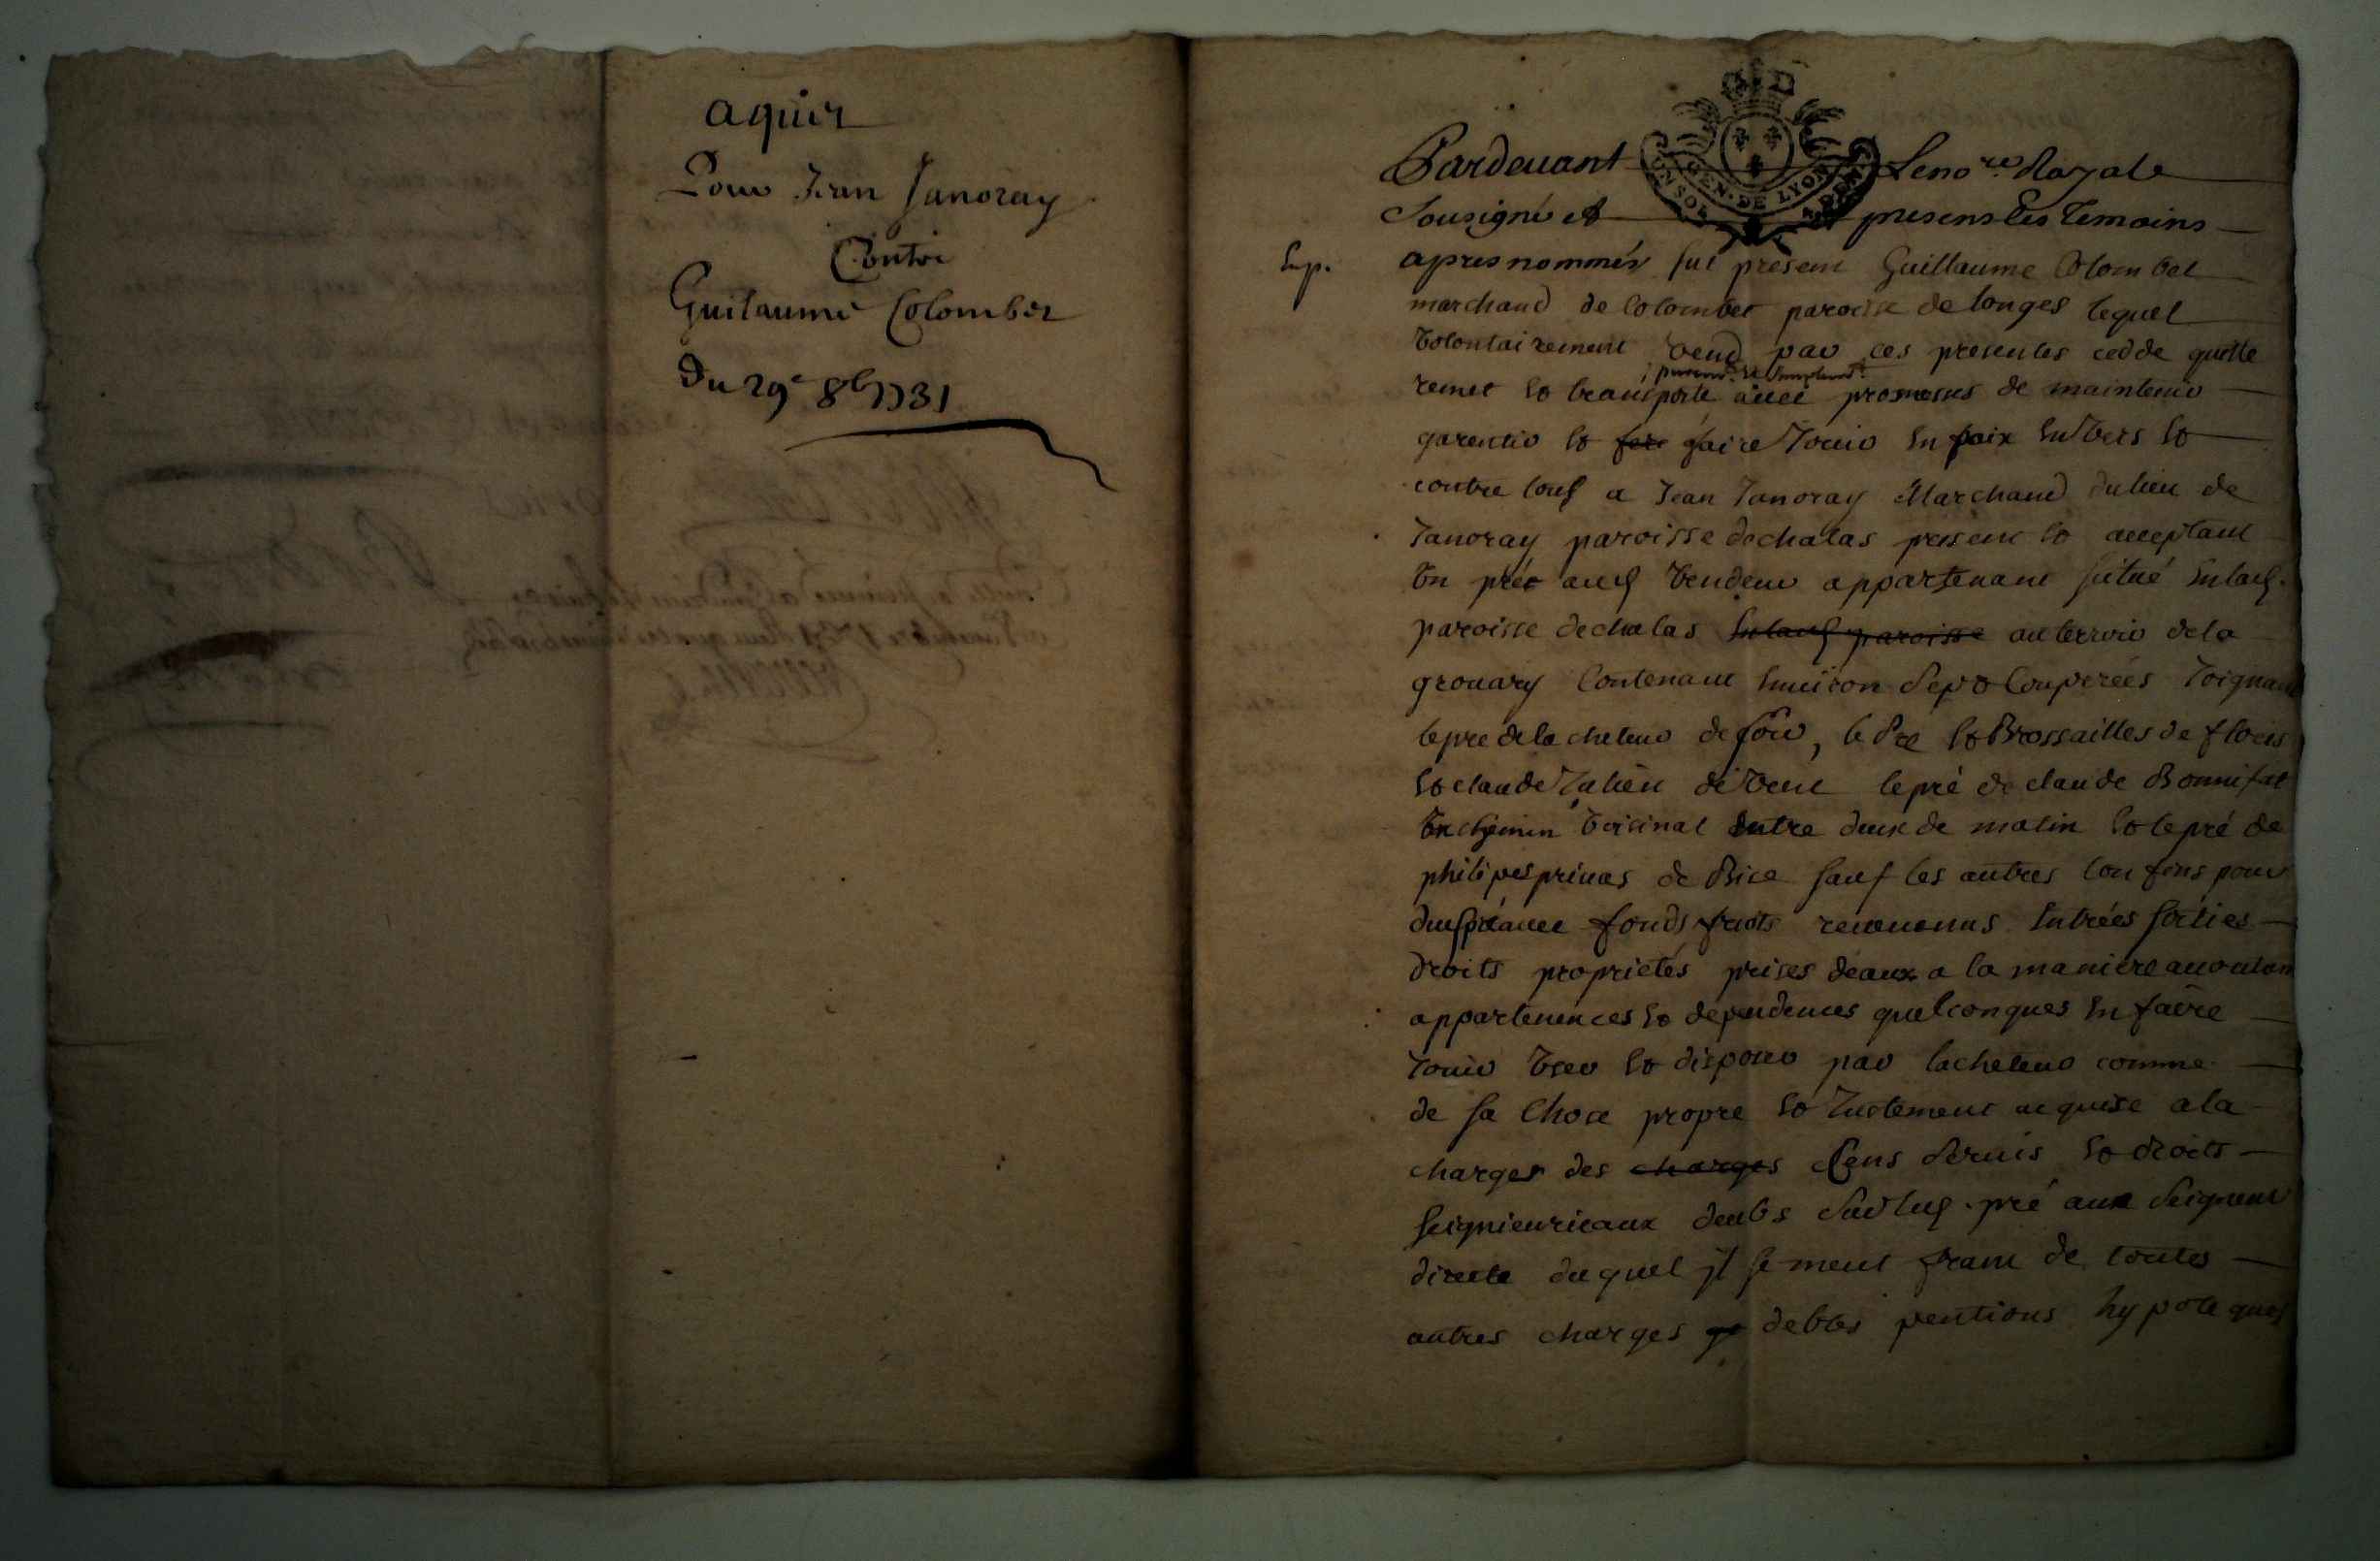 aquis
Pour Jean Janoray
Contre
Guilaume Colombet
Du 29e 8b 1731
GEN. DE LYON
Pardevant Le no.re Royale
Sousigné et presens les temoins
Exp.
apres nommés fut present Guillaume Colombet
marchand de Colombet paroisse de longes lequel
volontairement vend par ces presentes cedde quitte
purem.t et simplem.t
remet et transporte avec promesses de maintenir
garentir et faire jouir en paix envers et
contre tous a Jean Janoray Marchand du lieu de
Janoray paroisse de chalas present et acceptant
un pré aud vendeur appartenant scitué en lad.
paroisse de chalas en lad paroisse au terroir de la
grouary Contenant environ sept Couperées joignant
le pre de la cheteur de soir, le pré et Brossailles de
et claude Julien de vent le pré de claude Bonnifat
un chemin voisinal entre deux de matin et le pré de
philipes privas de Bise sauf les autres confins pour
dud pré avec fonds fruits revenenus entrées sorties
droits proprietés prises deaux a la maniere
appartenences et dependences quelconques en faire
jouir user et disposer par lacheteur comme
de sa Chose propre et justement acquise a la
charges des charges Cens servis et droits
seignieuriaux deubs sur led. pré aux seigneur
directe duquel il se meut franc de toutes
autres charges debtes pentions hypoteques